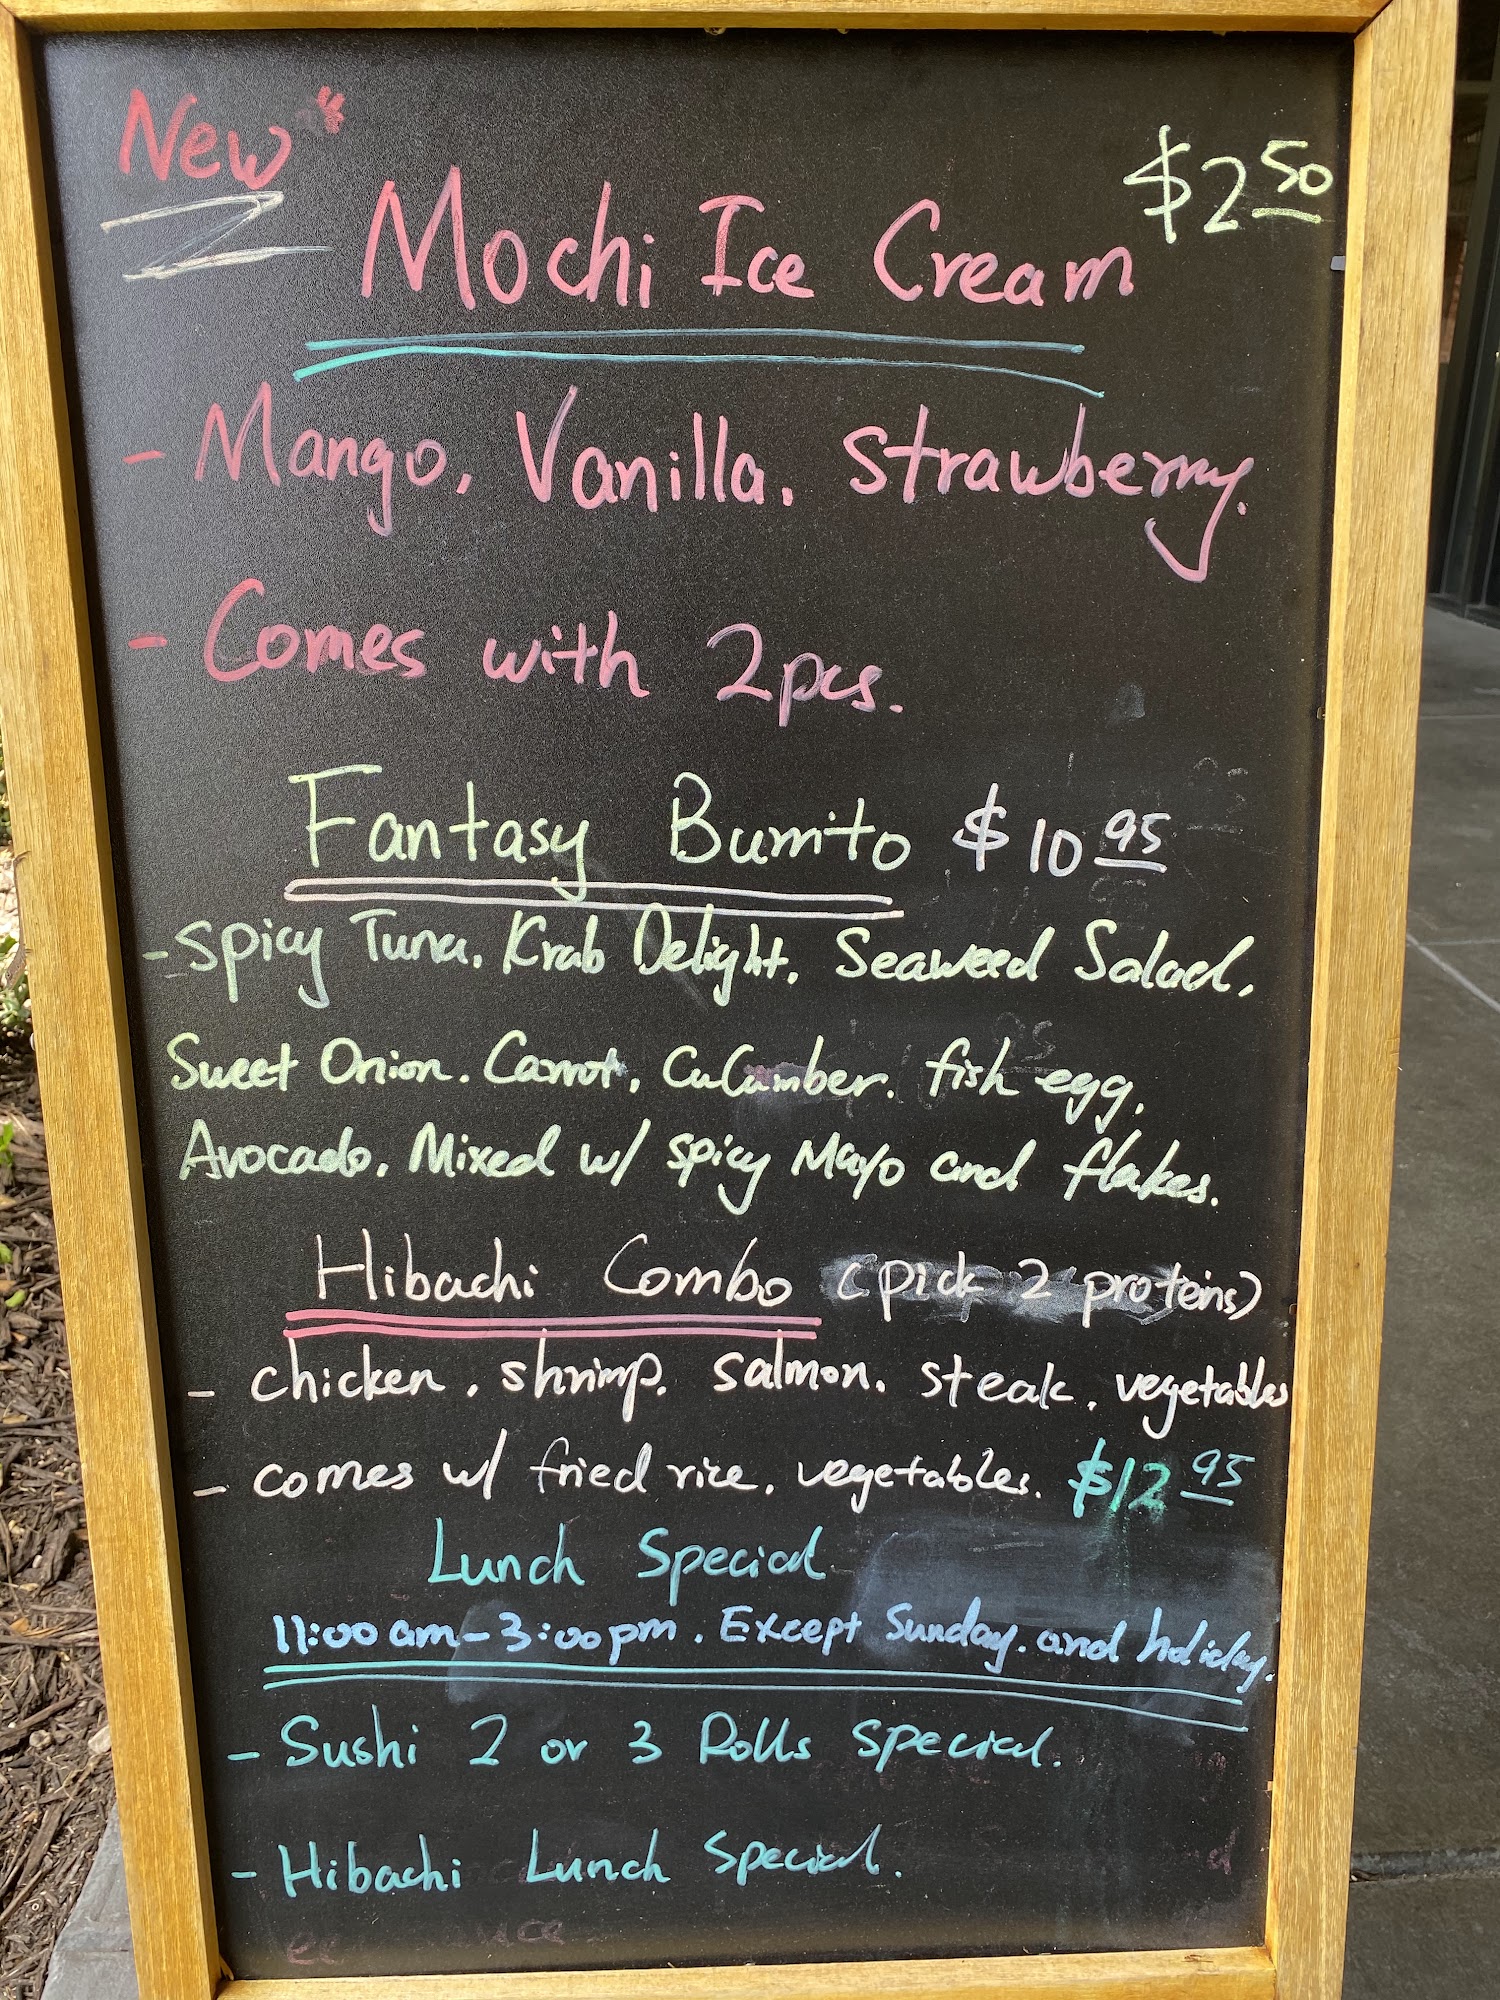 New*
$2.50
Mochi Ice Cream
- Mango, Vanilla, Strawberry.
- Comes with 2pcs.
Fantasy Burrito $10.95
- Spicy Tuna, Krab Delight, Seaweed Salad,
Sweet Onion, Carrot, Cucumber, fish egg,
Avocado, Mixed w/ spicy Mayo and flakes.
Hibachi Combo (pick 2 proteins)
- chicken, shrimp, salmon, steak, vegetables
- comes w/ fried rice, vegetables. $12.95
Lunch Special
11:00am-3:00pm. Except Sunday. and holiday.
- Sushi 2 or 3 Rolls Special.
- Hibachi Lunch Special.